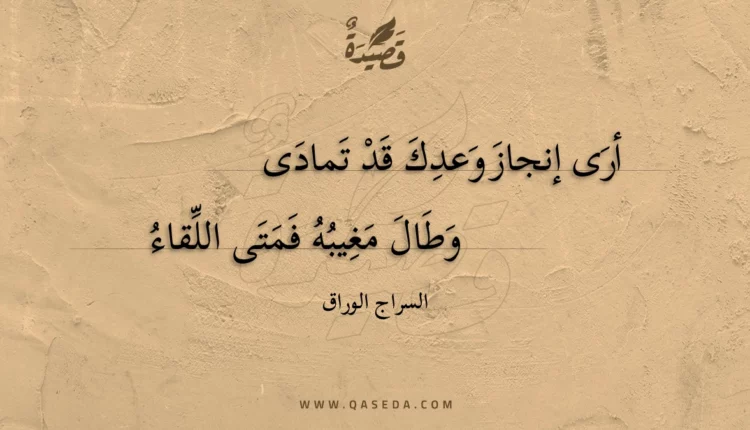 قَصِيْدَةٌ
أرَى إنجازَ وَعدِكَ قَدْ تَمادَى
وَطَالَ مَغِيبُهُ فَمَتَى اللِّقاءُ
السراج الوراق
WWW.QASEDA.COM